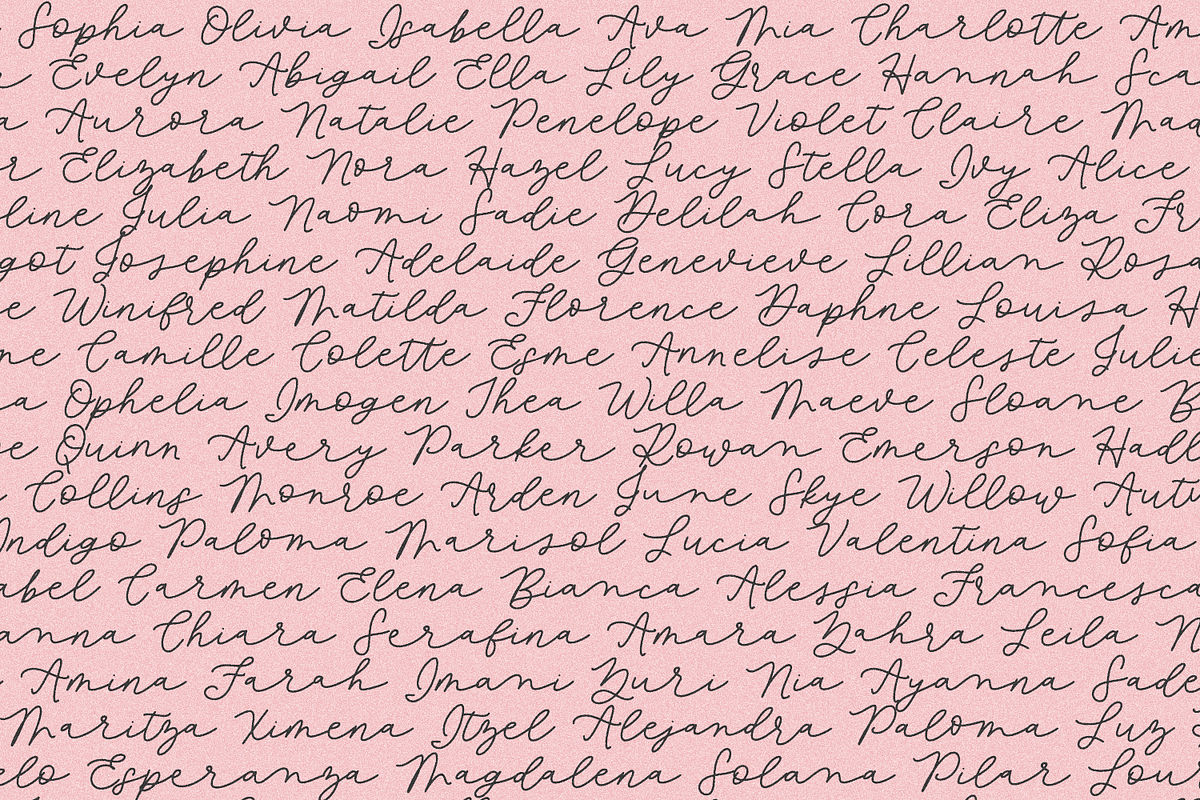 Sophia Olivia Isabella Ava Mia Charlotte Am
Evelyn Abigail Ella Lily Grace Hannah Sca
a Aurora Natalie Penelope Violet Claire Mad
r Elizabeth Nora Hazel Lucy Stella Ivy Alice
line Julia Naomi Sadie Delilah Cora Eliza Fr
got Josephine Adelaide Genevieve Lillian Rosa
e Winifred Matilda Florence Daphne Louisa H
ne Camille Colette Esme Annelise Celeste Julie
a Ophelia Imogen Thea Willa Maeve Sloane B
e Quinn Avery Parker Rowan Emerson Hadl
Collins Monroe Arden June Skye Willow Autu
Indigo Paloma Marisol Lucia Valentina Sofia
abel Carmen Elena Bianca Alessia Francesca
anna Chiara Serafina Amara Zahra Leila N
Amina Farah Imani Zuri Nia Ayanna Sade
Maritza Ximena Itzel Alejandra Paloma Luz
elo Esperanza Magdalena Solana Pilar Lour